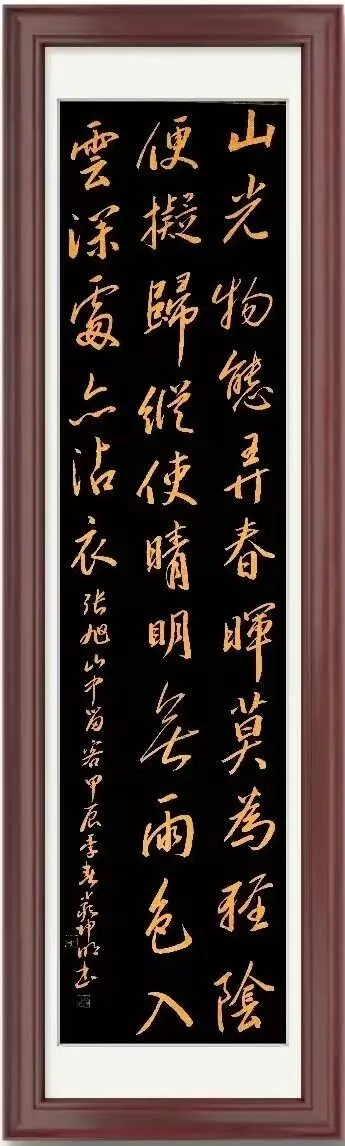 山光物態弄春暉莫為輕陰
便擬歸縱使晴明無雨色入
雲深處亦沾衣張旭山中留客甲辰季春坤明书